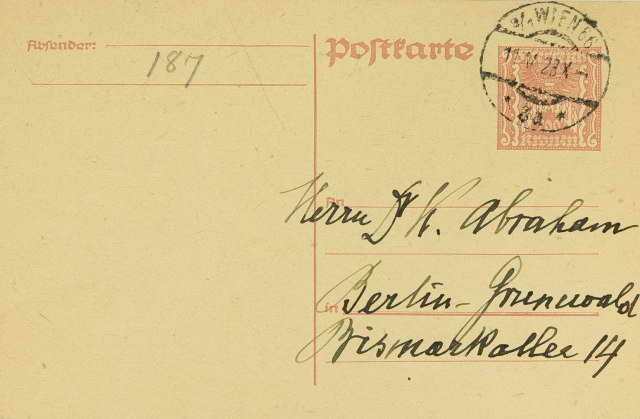 Absender:
187
Postkarte
9/1 WIEN 66
IV 23 X
* 8a *
Kronen
An
Herrn Dr K. Abraham
in Berlin-Grunewald
Bismarkallee 14